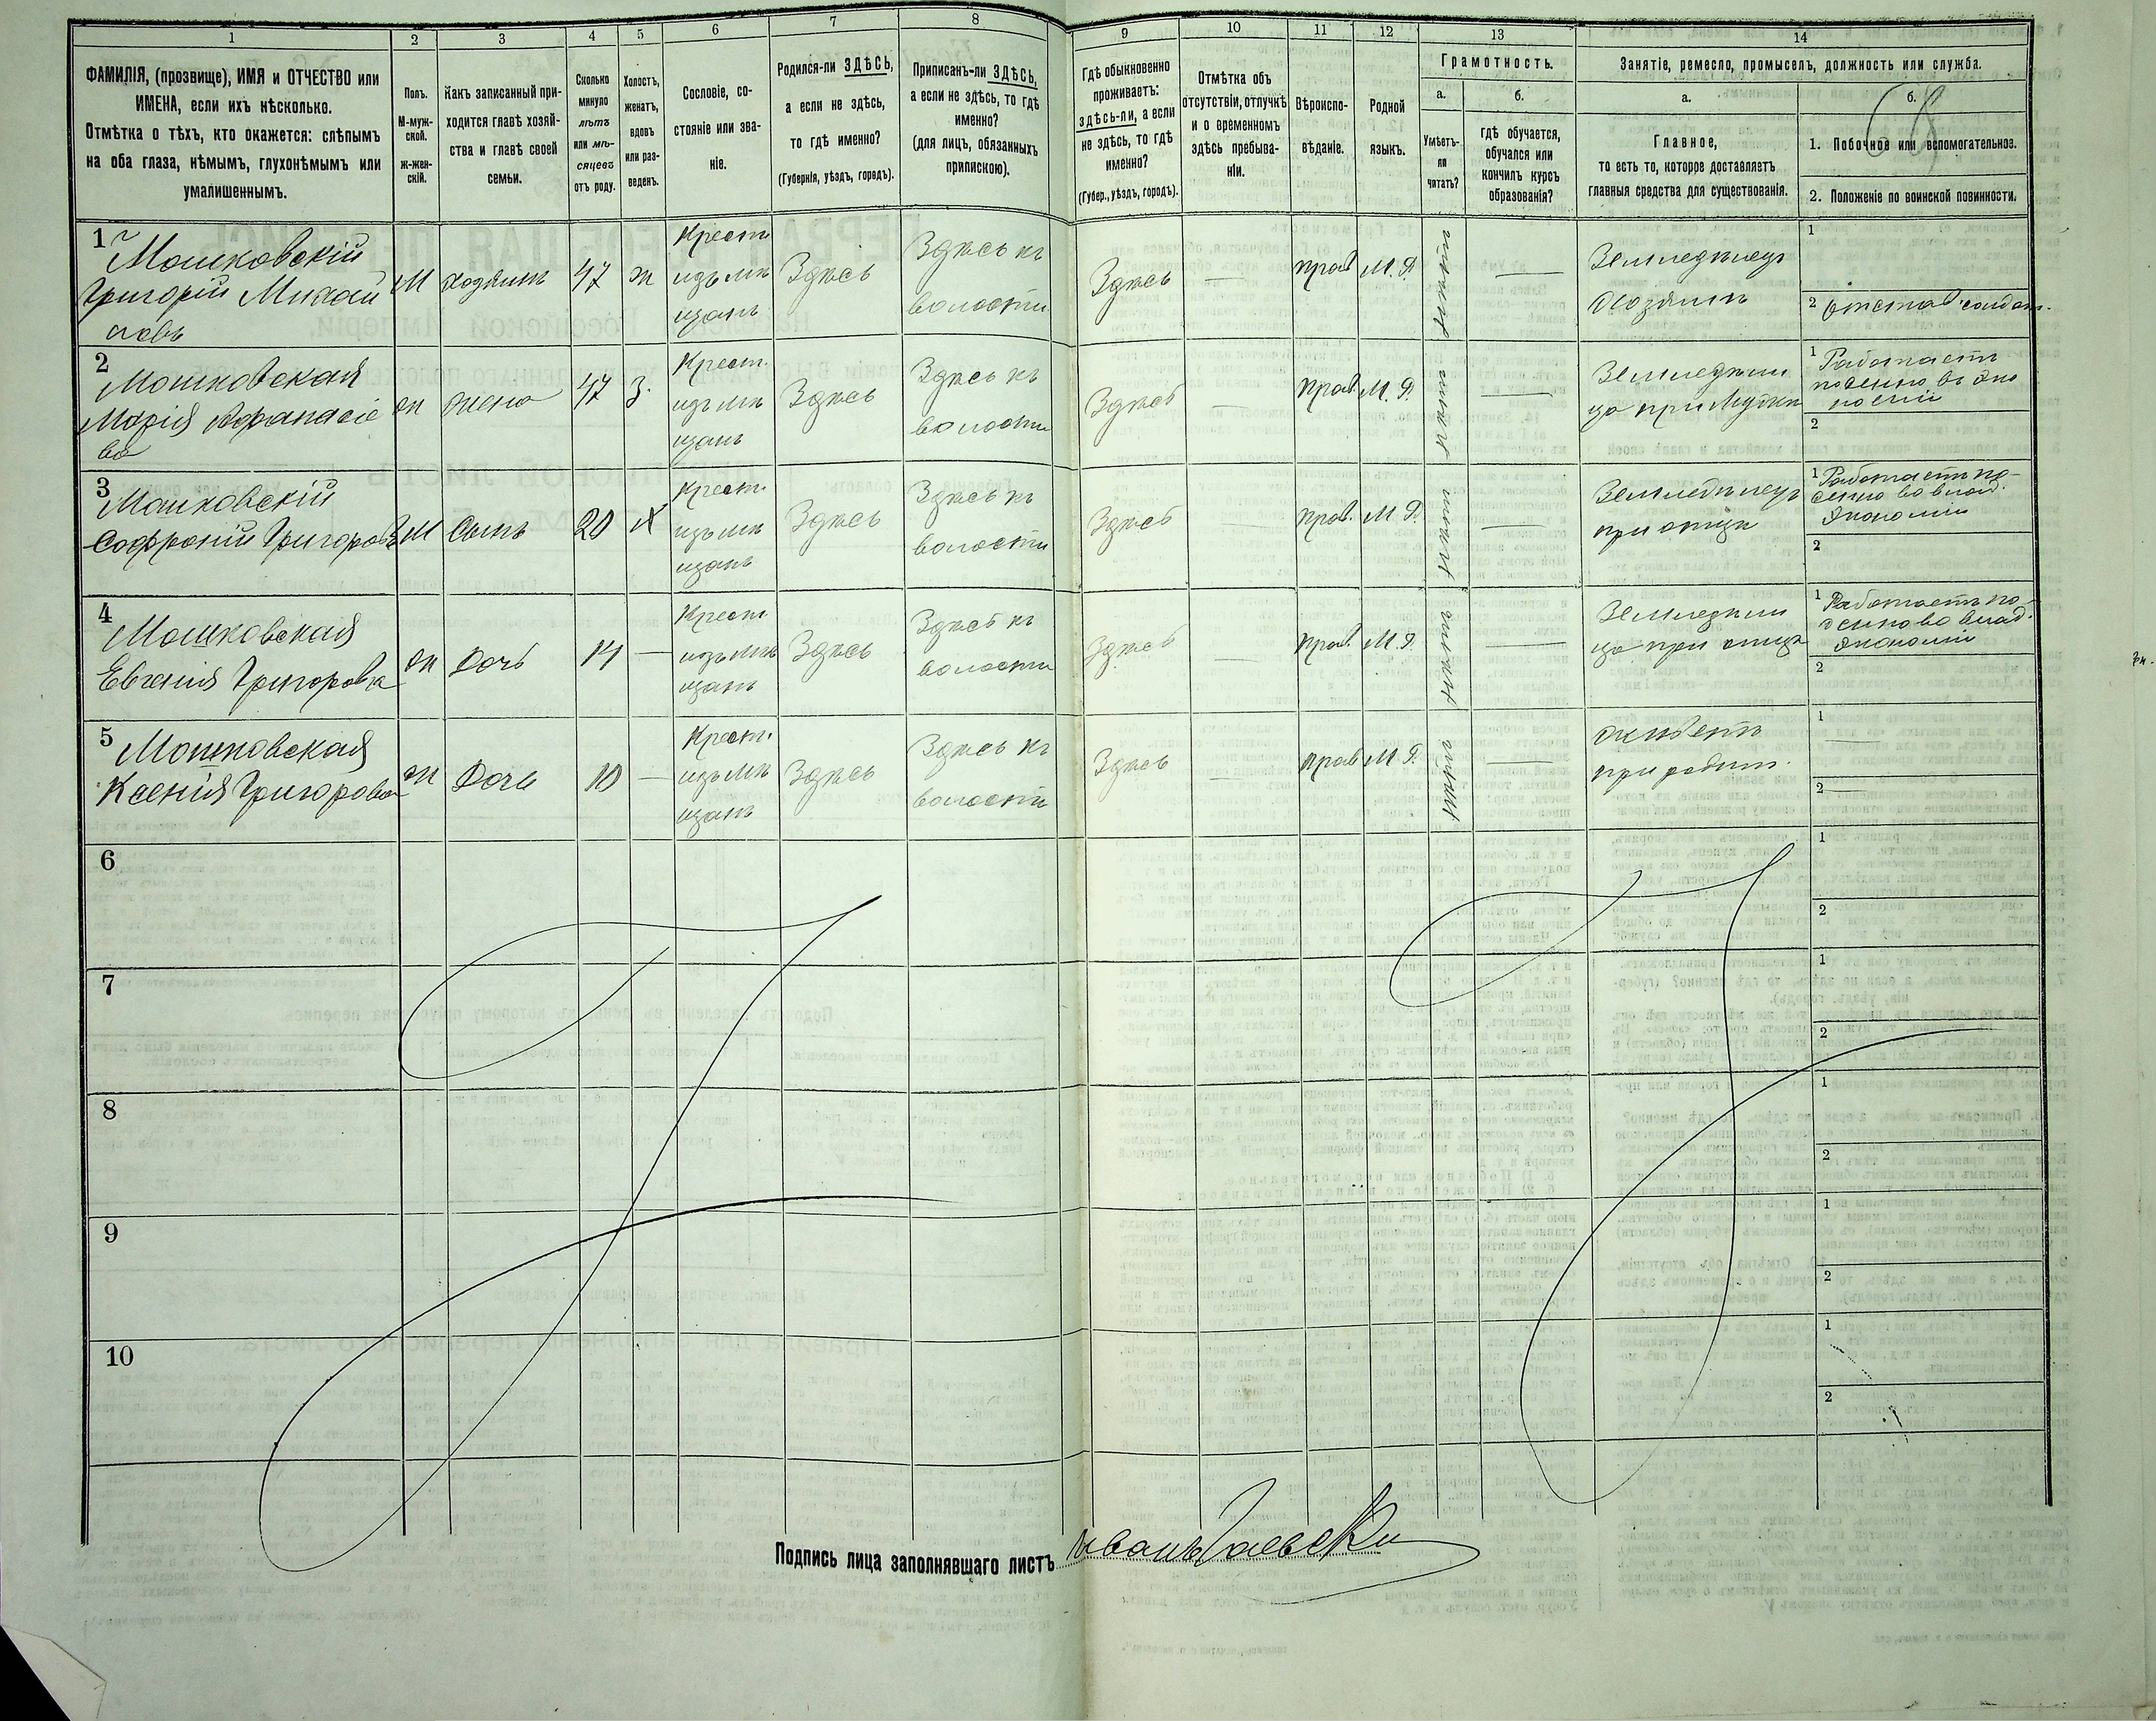 1 2 3 4 5 6 7 8 9 10 11 12 13 14
ФАМИЛІЯ, (прозвище), ИМЯ и ОТЧЕСТВО или
ИМЕНА, если ихъ нѣсколько.
Отмѣтка о тѣхъ, кто окажется: слѣпымъ
на оба глаза, нѣмымъ, глухонѣмымъ или
умалишеннымъ.
Полъ.
М-муж-
ской.
ж-жен-
скій.
Какъ записанный при-
ходится главѣ хозяй-
ства и главѣ своей
семьи.
Сколько
минуло
лѣтъ
или мѣ-
сяцевъ
отъ роду.
Холостъ,
женатъ,
вдовъ
или раз-
веденъ.
Сословіе, со-
стояніе или зва-
ніе.
Родился-ли ЗДѢСЬ,
а если не здѣсь,
то гдѣ именно?
(Губернія, уѣздъ, городъ).
Приписанъ-ли ЗДѢСЬ,
а если не здѣсь, то гдѣ
именно?
(для лицъ, обязанныхъ
припискою).
Гдѣ обыкновенно
проживаетъ:
здѣсь-ли, а если
не здѣсь, то гдѣ
именно?
(Губер., уѣздъ, городъ).
Отмѣтка объ
отсутствіи, отлучкѣ
и о временномъ
здѣсь пребыва-
ніи.
Вѣроиспо-
вѣданіе.
Родной
языкъ.
Грамотность.
а.
Умѣетъ-
ли
читать?
б.
гдѣ обучается,
обучался или
кончилъ курсъ
образованія?
Занятіе, ремесло, промыселъ, должность или служба.
а.
Главное,
то есть то, которое доставляетъ
главныя средства для существованія.
б.
1. Побочное или вспомогательное.
2. Положеніе по воинской повинности.
68
1 Мошковскій
Григорій Михай
ловъ
М
Хозяинъ
47
ж
Крест.
изъ мѣ
щанъ
Здѣсь
Здѣсь къ
волости
Здѣсь
—
прав.
М. Р.
—
Земледѣлецъ
Хозяинъ
1
2 Отстав. солдат.
2
Мошковская
Марія Афанасіе
ва
ж
жена
47
з.
Крест.
изъ мѣ
щанъ
Здѣсь
Здѣсь къ
волости
Здѣсь
—
прав.
М. Р.
—
Земледѣли
ца при мужѣ
1 Работаетъ
поденно въ эко
номіи
2
3
Мошковскій
Софроній Григоровъ
М
Сынъ
20
Х
Крест.
изъ мѣ
щанъ
Здѣсь
Здѣсь къ
волости
Здѣсь
прав.
М. Р.
—
Земледѣлецъ
при отцѣ
1 Работаетъ по-
денно во влад.
экономіи
2
4
Мошковская
Евгенія Григоровна
ж
Дочь
14
—
Крест.
изъ мѣ
щанъ
Здѣсь
Здѣсь къ
волости
Здѣсь
—
прав.
М. Р.
—
Земледѣли
ца при отцѣ
1 Работаетъ по-
денно во влад.
экономіи
2
5
Мошковская
Ксенія Григорова
ж
Дочь
10
—
Крест.
изъ мѣ
щанъ
Здѣсь
Здѣсь къ
волости
Здѣсь
—
прав.
М. Р.
—
живетъ
при родит.
1 —
2 —
6
1
2
7
1
2
8
1
2
9
1
2
10
1
2
Подпись лица заполнявшаго листъ Иванъ